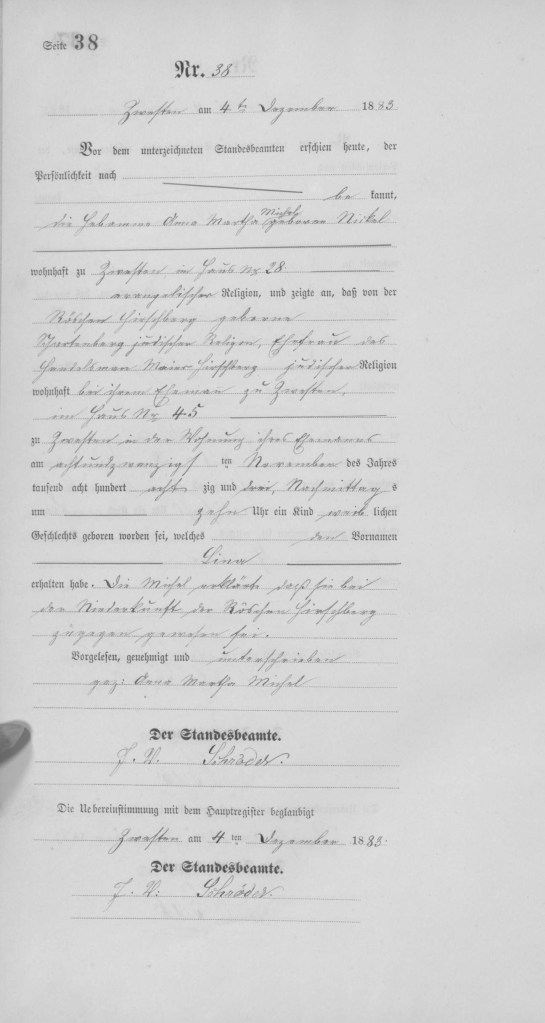 Seite 38
Nr. 38
Zwesten am 4ten Dezember 1883
Vor dem unterzeichneten Standesbeamten erschien heute, der
Persönlichkeit nach
be kannt,
die Hebamme Anna Martha Michel geborene Nickel
wohnhaft zu Zwesten in Haus No 28
evangelischer Religion, und zeigte an, daß von der
Röschen Hirschberg geborne
jüdischer Religion, Ehefrau des
Handelsman Maier Hirschberg jüdischer Religion
wohnhaft bei ihrem Eheman zu Zwesten,
im Haus No 45
zu Zwesten in der Wohnung ihres Ehemanns
am achtundzwanzigst ten November des Jahres
tausend acht hundert acht zig und drei, Nachmittag s
um zehn Uhr ein Kind weib lichen
Geschlechts geboren worden sei, welches den Vornamen
Lina
erhalten habe. Die Michel erklärte daß sie bei
der Niederkunft der Röschen Hirschberg
zugegen gewesen sei.
Vorgelesen, genehmigt und unterschrieben
gez: Anna Martha Michel
Der Standesbeamte.
J. V. Schröder.
Die Uebereinstimmung mit dem Hauptregister beglaubigt
Zwesten am 4 ten Dezember 1883.
Der Standesbeamte.
J. V. Schröder.